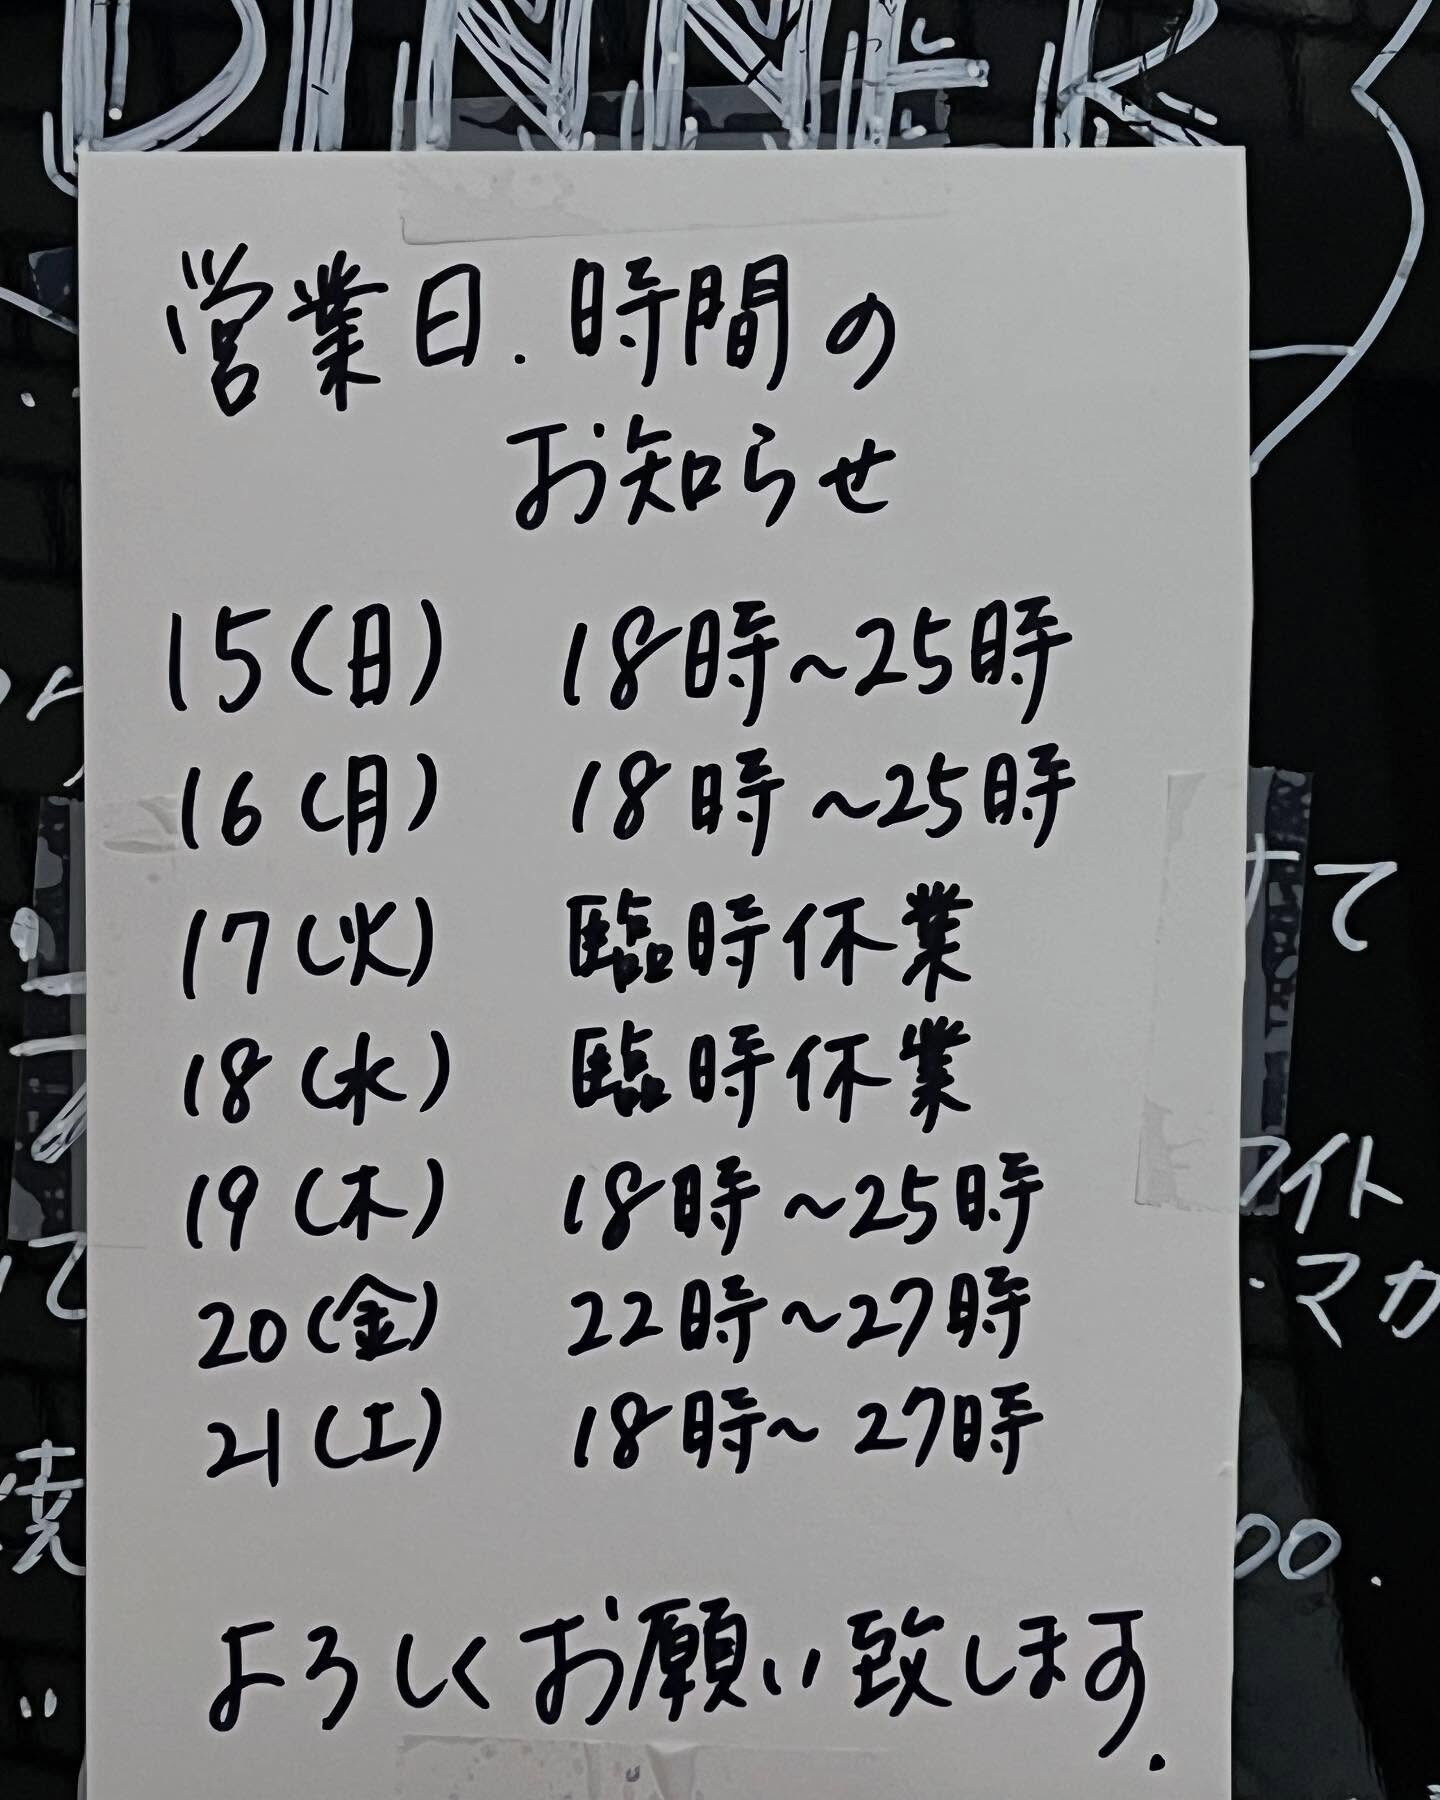 DINNER
営業日.時間の
お知らせ
15(日) 18時~25時
16(月) 18時~25時
17(火) 臨時休業
18(水) 臨時休業
19(木) 18時~25時
20(金) 22時~27時
21(土) 18時~27時
よろしくお願い致します.